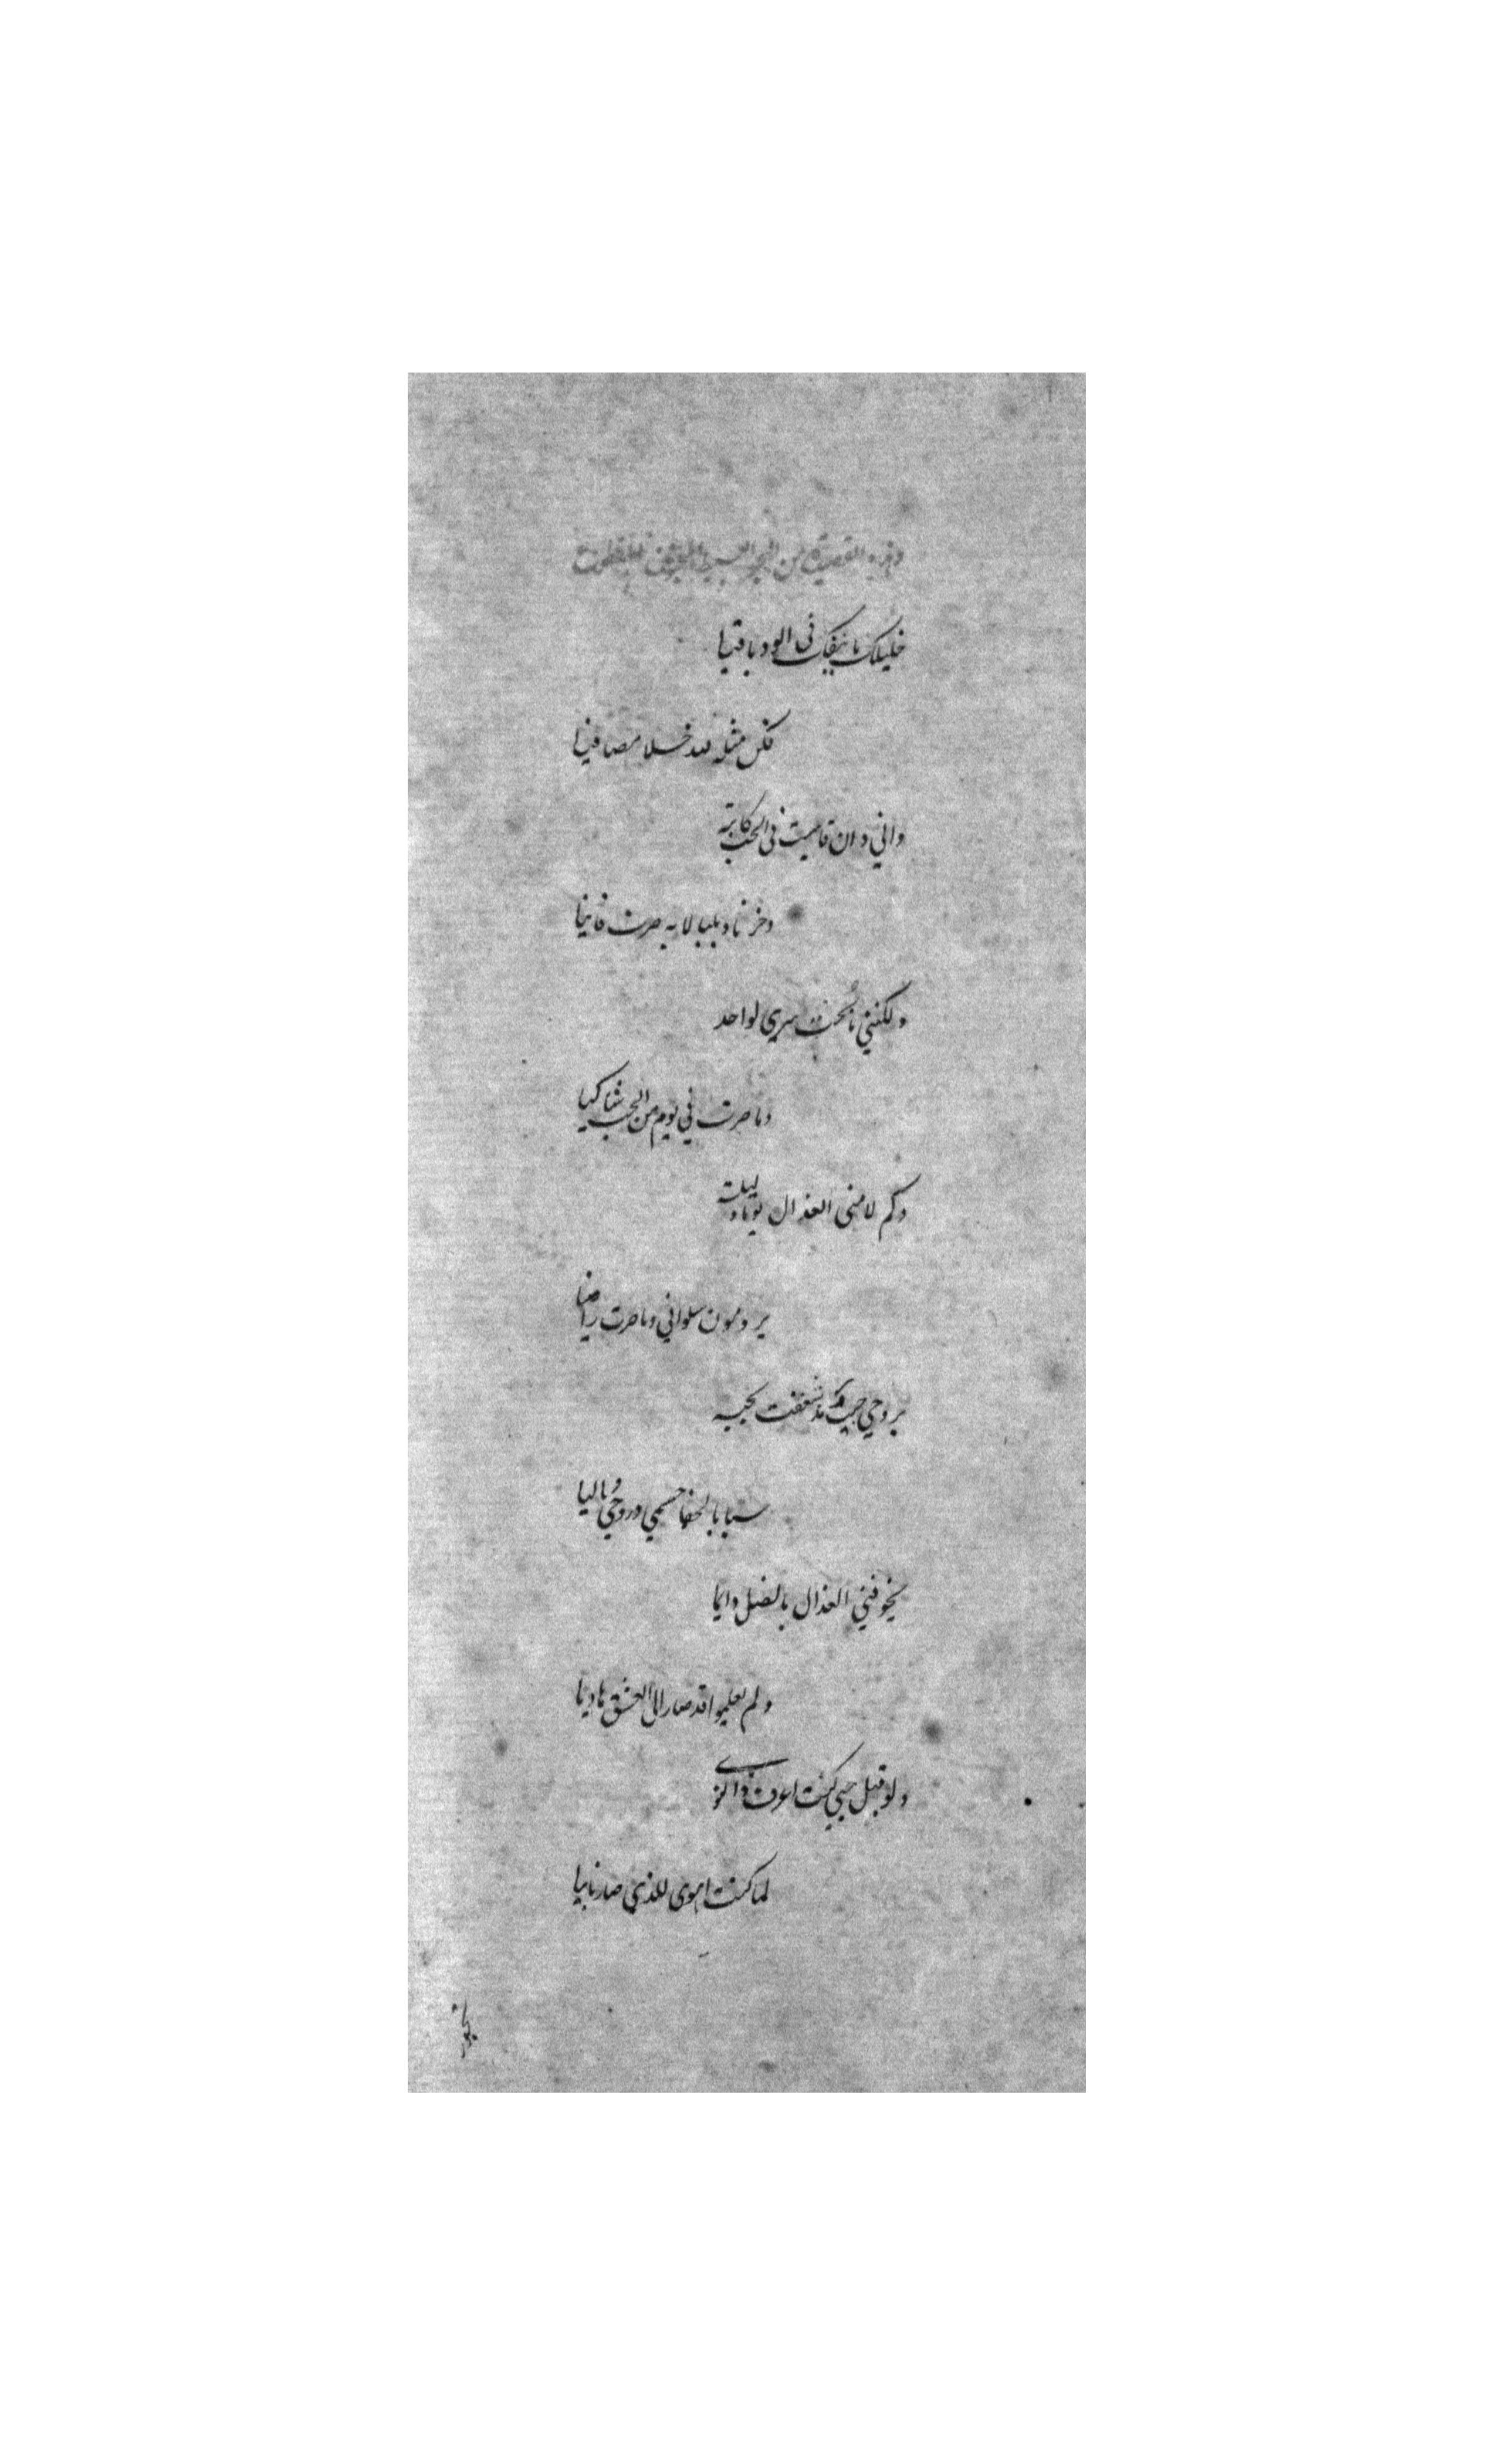 وهذه القصيدة من البحر البسيط
خليلك ما ينفك في الود باقيا
فكن مثله لله خلا مصافيا
واني وان قاسيت في الحب كابة
وحزنا وبلبالا به صرت فانيا
ولكنني ما بحت سري لواحد
وما صرت في يوم من الحب شاكيا
وكم لامني العذال يوما وليلة
يرومون سلواني وما صرت راضيا
بروحي حبيب مذ شغفت بحبه
سبا بالجفا جسمي وروحي وماليا
يخوفني العذال بالضل دايما
ولم يعلموا قد صار لي العشق هاديا
ولو قبل حبي كنت اعرف ذا النوى
لما كنت اهوى للذي صار نايبا